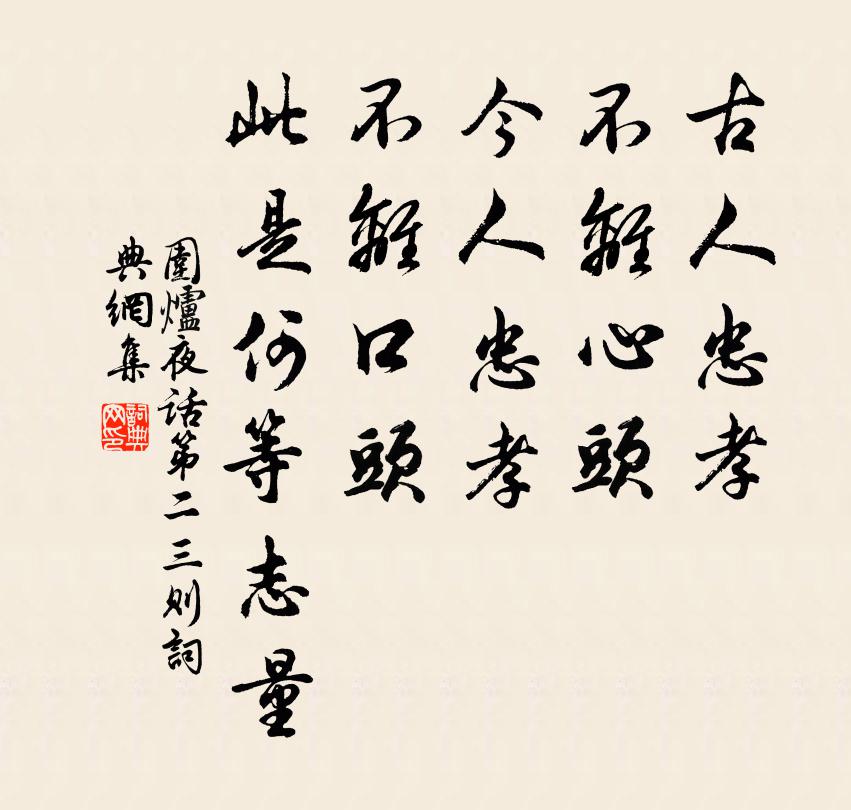 古人忠孝
不離心頭
今人忠孝
不離口頭
此是何等志量
圍爐夜話第二三則詞
典網集
詞典
网印